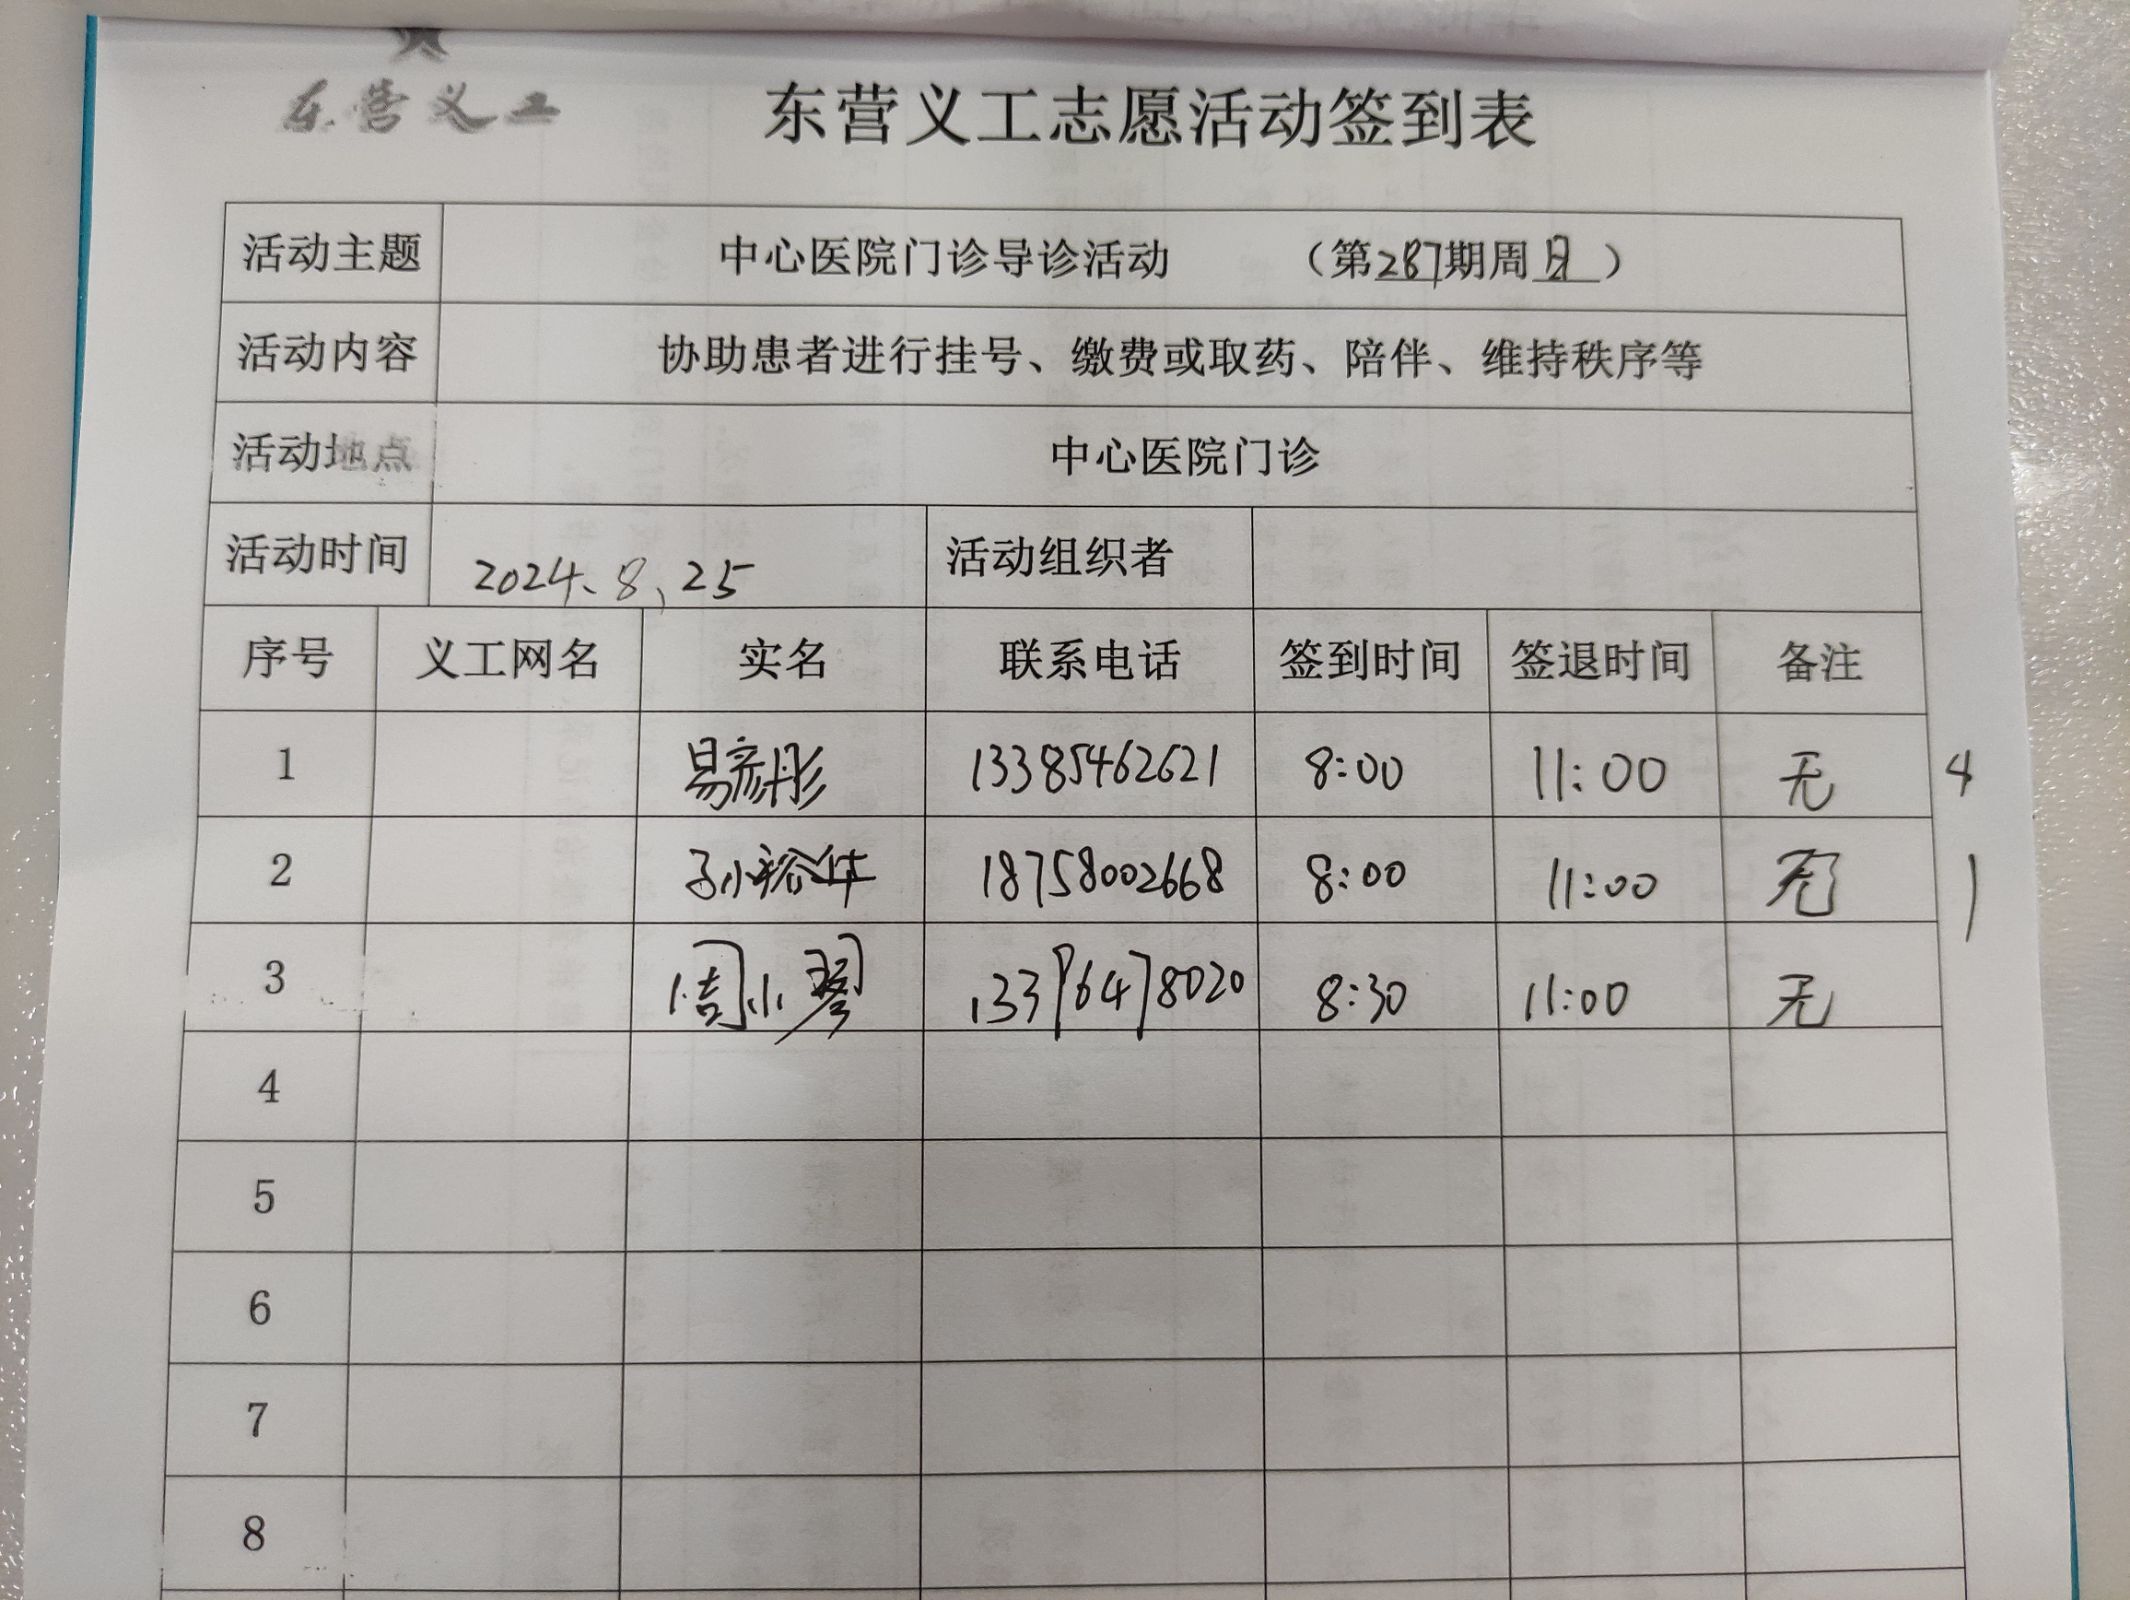 东营义工
东营义工志愿活动签到表
活动主题 中心医院门诊导诊活动 （第287期周日）
活动内容 协助患者进行挂号、缴费或取药、陪伴、维持秩序等
活动地点 中心医院门诊
活动时间 2024、8、25 活动组织者
序号 义工网名 实名 联系电话 签到时间 签退时间 备注
1 易彦彤 13385462621 8:00 11:00 无 4
2 孙裕华 18758002668 8:00 11:00 无 1
3 周小琴 13376478020 8:30 11:00 无
4
5
6
7
8